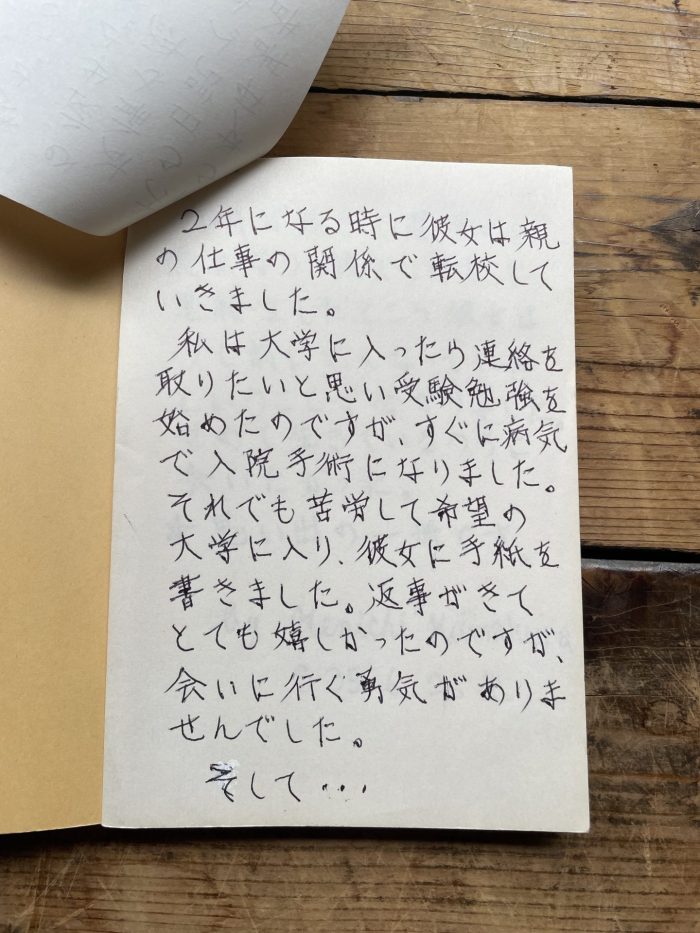 ２年になる時に彼女は親
の仕事の関係で転校して
いきました。
私は大学に入ったら連絡を
取りたいと思い受験勉強を
始めたのですが、すぐに病気
で入院手術になりました。
それでも苦労して希望の
大学に入り、彼女に手紙を
書きました。返事がきて
とても嬉しかったのですが、
会いに行く勇気がありま
せんでした。
そして・・・